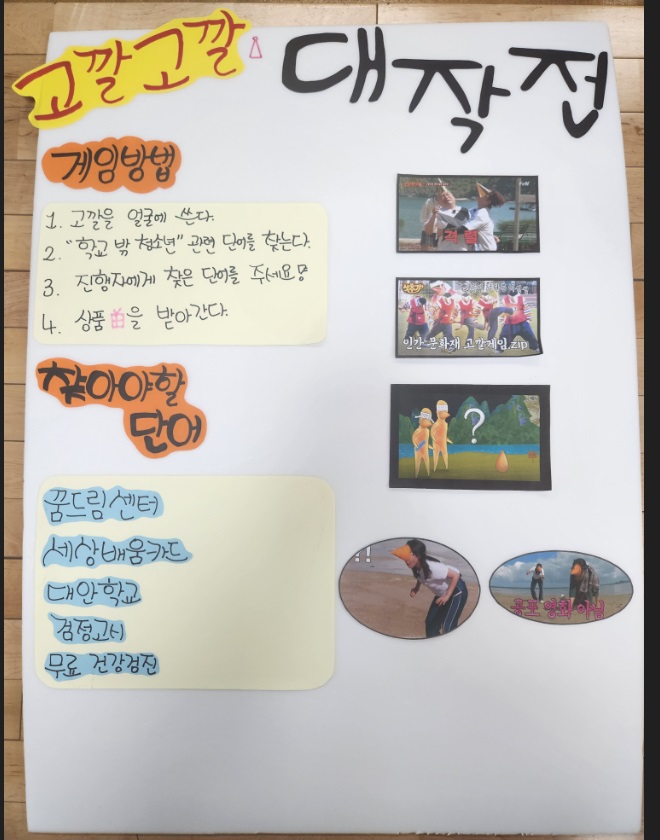 고깔고깔 대작전
게임방법
1. 고깔을 얼굴에 쓴다.
2. "학교 밖 청소년" 관련 단어를 찾는다.
3. 진행자에게 찾은 단어를 주세요!
4. 상품을 받아간다.
찾아야할
단어
꿈드림센터
세상배움카드
대안학교
검정고시
무료 건강검진
인간 문화재 고깔게임.zip
?
!!
공포 영화 아님